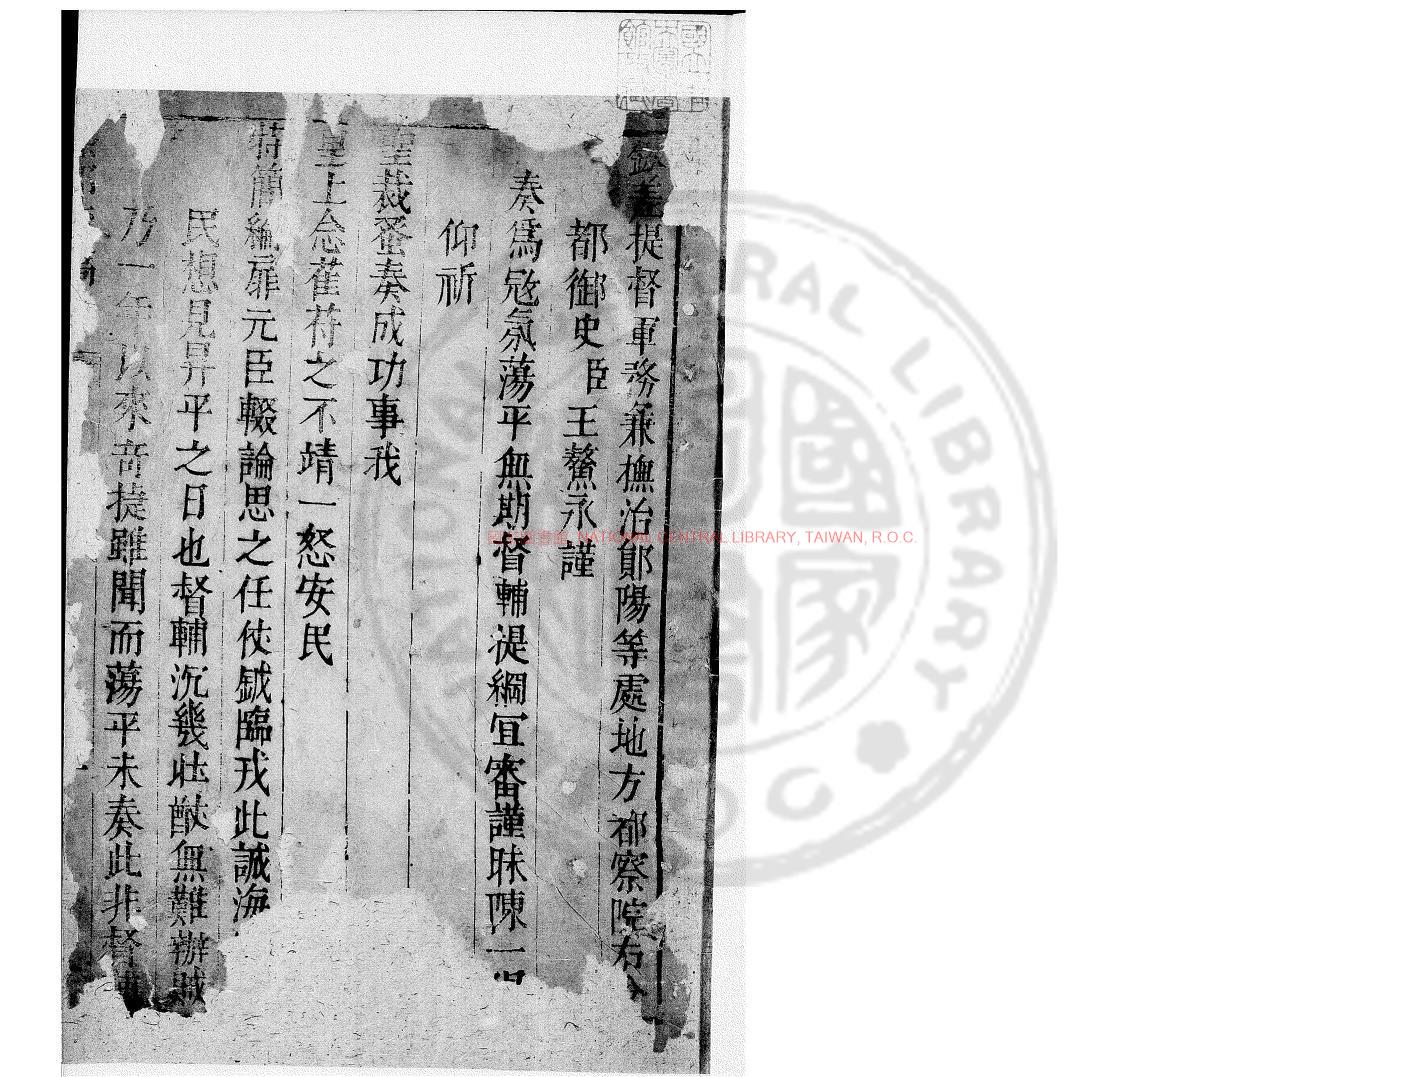 欽差提督軍務兼撫治鄖陽等處地方都察院右
都御史臣王鰲永謹
奏爲寇氛蕩平無期督輔提綱宜審謹昧陳一
仰祈
聖裁蚤奏成功事我
皇上念萑苻之不靖一怒安民
特簡綸扉元臣輟論思之任仗鉞臨戎此誠海
民想見昇平之日也督輔沉幾壯猷無難辦賊
乃一年以來奇捷雖聞而蕩平未奏此非督
國家圖書館, NATIONAL CENTRAL LIBRARY, TAIWAN, R.O.C.
NATIONAL CENTRAL LIBRARY